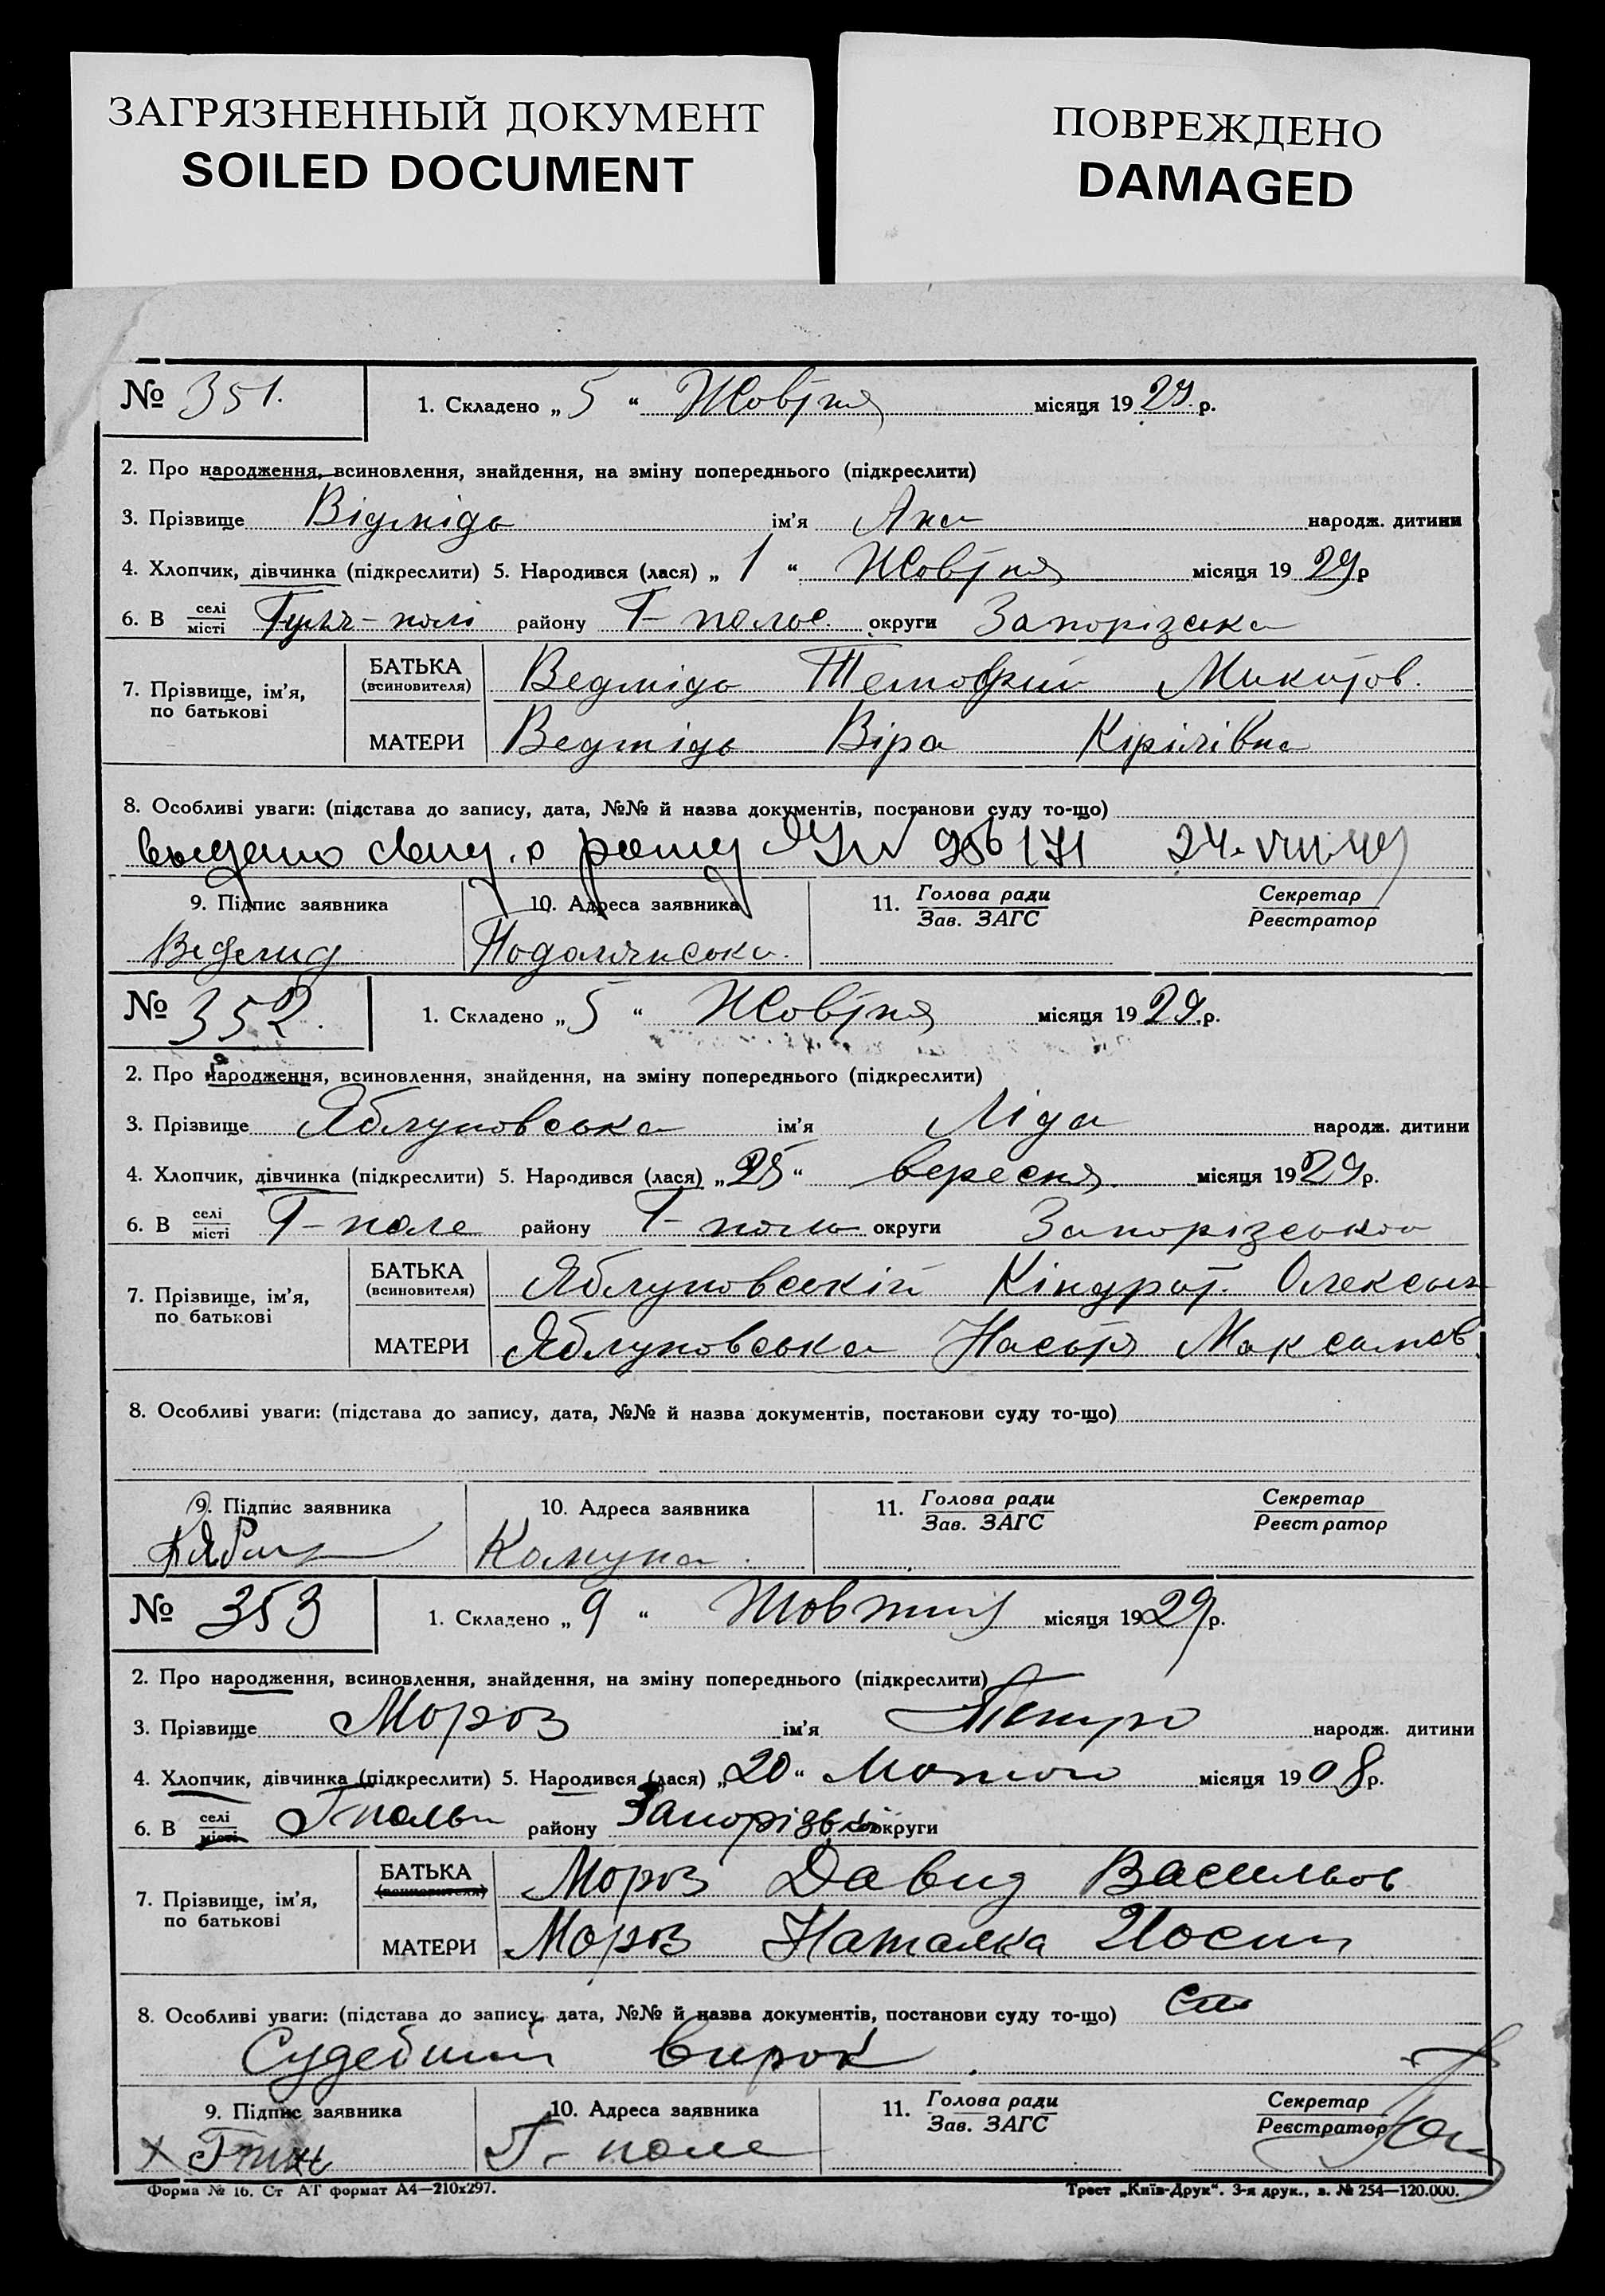 ЗАГРЯЗНЕННЫЙ ДОКУМЕНТ
SOILED DOCUMENT
ПОВРЕЖДЕНО
DAMAGED
№ 351. 1. Складено „ 5 “ Жовтня місяця 1929. р.
2. Про народження, всиновлення, знайдення, на зміну попереднього (підкреслити)
3. Прізвище Відмідь ім'я Ана народж. дитини
4. Хлопчик, дівчинка (підкреслити) 5. Народився (лася) „ 1 “ Жовтня місяця 19 29 р
6. В селі місті Гуляй-полі району Г-полє. округи Запорізська
7. Прізвище, ім'я, по батькові
БАТЬКА (всиновителя) Ведмідь Темофій Микитов.
МАТЕРИ Ведмідь Віра Кірілівна
8. Особливі уваги: (підстава до запису, дата, №№ й назва документів, постанови суду то-що)
956171 24. VIII. 49
9. Підпис заявника 10. Адреса заявника 11. Голова ради Зав. ЗАГС Секретар Реєстратор
Ведмид Подолянська.
№ 352. 1. Складено „ 5 “ Жовтня місяця 19 29. р.
2. Про народження, всиновлення, знайдення, на зміну попереднього (підкреслити)
3. Прізвище Яблуновська ім'я Ліда народж. дитини
4. Хлопчик, дівчинка (підкреслити) 5. Народився (лася) „ 25 “ вересня місяця 19 29 р.
6. В селі місті Г-поле району Г- округи Запорізської
7. Прізвище, ім'я, по батькові
БАТЬКА (всиновителя) Яблуновський Кіндрат. Олексын
МАТЕРИ Яблуновська Настя Максимов.
8. Особливі уваги: (підстава до запису, дата, №№ й назва документів, постанови суду то-що)
9. Підпис заявника 10. Адреса заявника 11. Голова ради Зав. ЗАГС Секретар Реєстратор
Комуна.
№ 353 1. Складено „ 9 “ Жовтня місяця 1929 р.
2. Про народження, всиновлення, знайдення, на зміну попереднього (підкреслити)
3. Прізвище Мороз ім'я Петро народж. дитини
4. Хлопчик, дівчинка (підкреслити) 5. Народився (лася) „ 20 “ Лютого місяця 19 08 р.
6. В селі місті району Запорізької округи
7. Прізвище, ім'я, по батькові
БАТЬКА (всиновителя) Мороз Давид Васильов
МАТЕРИ Мороз Наталка Иосип
8. Особливі уваги: (підстава до запису, дата, №№ й назва документів, постанови суду то-що)
Судебний вирок.
9. Підпис заявника 10. Адреса заявника 11. Голова ради Зав. ЗАГС Секретар Реєстратор
Г- поле
Форма № 16. Ст АТ формат А4—210х297. Трест „Київ-Друк“. 3-я друк., з. № 254—120.000.